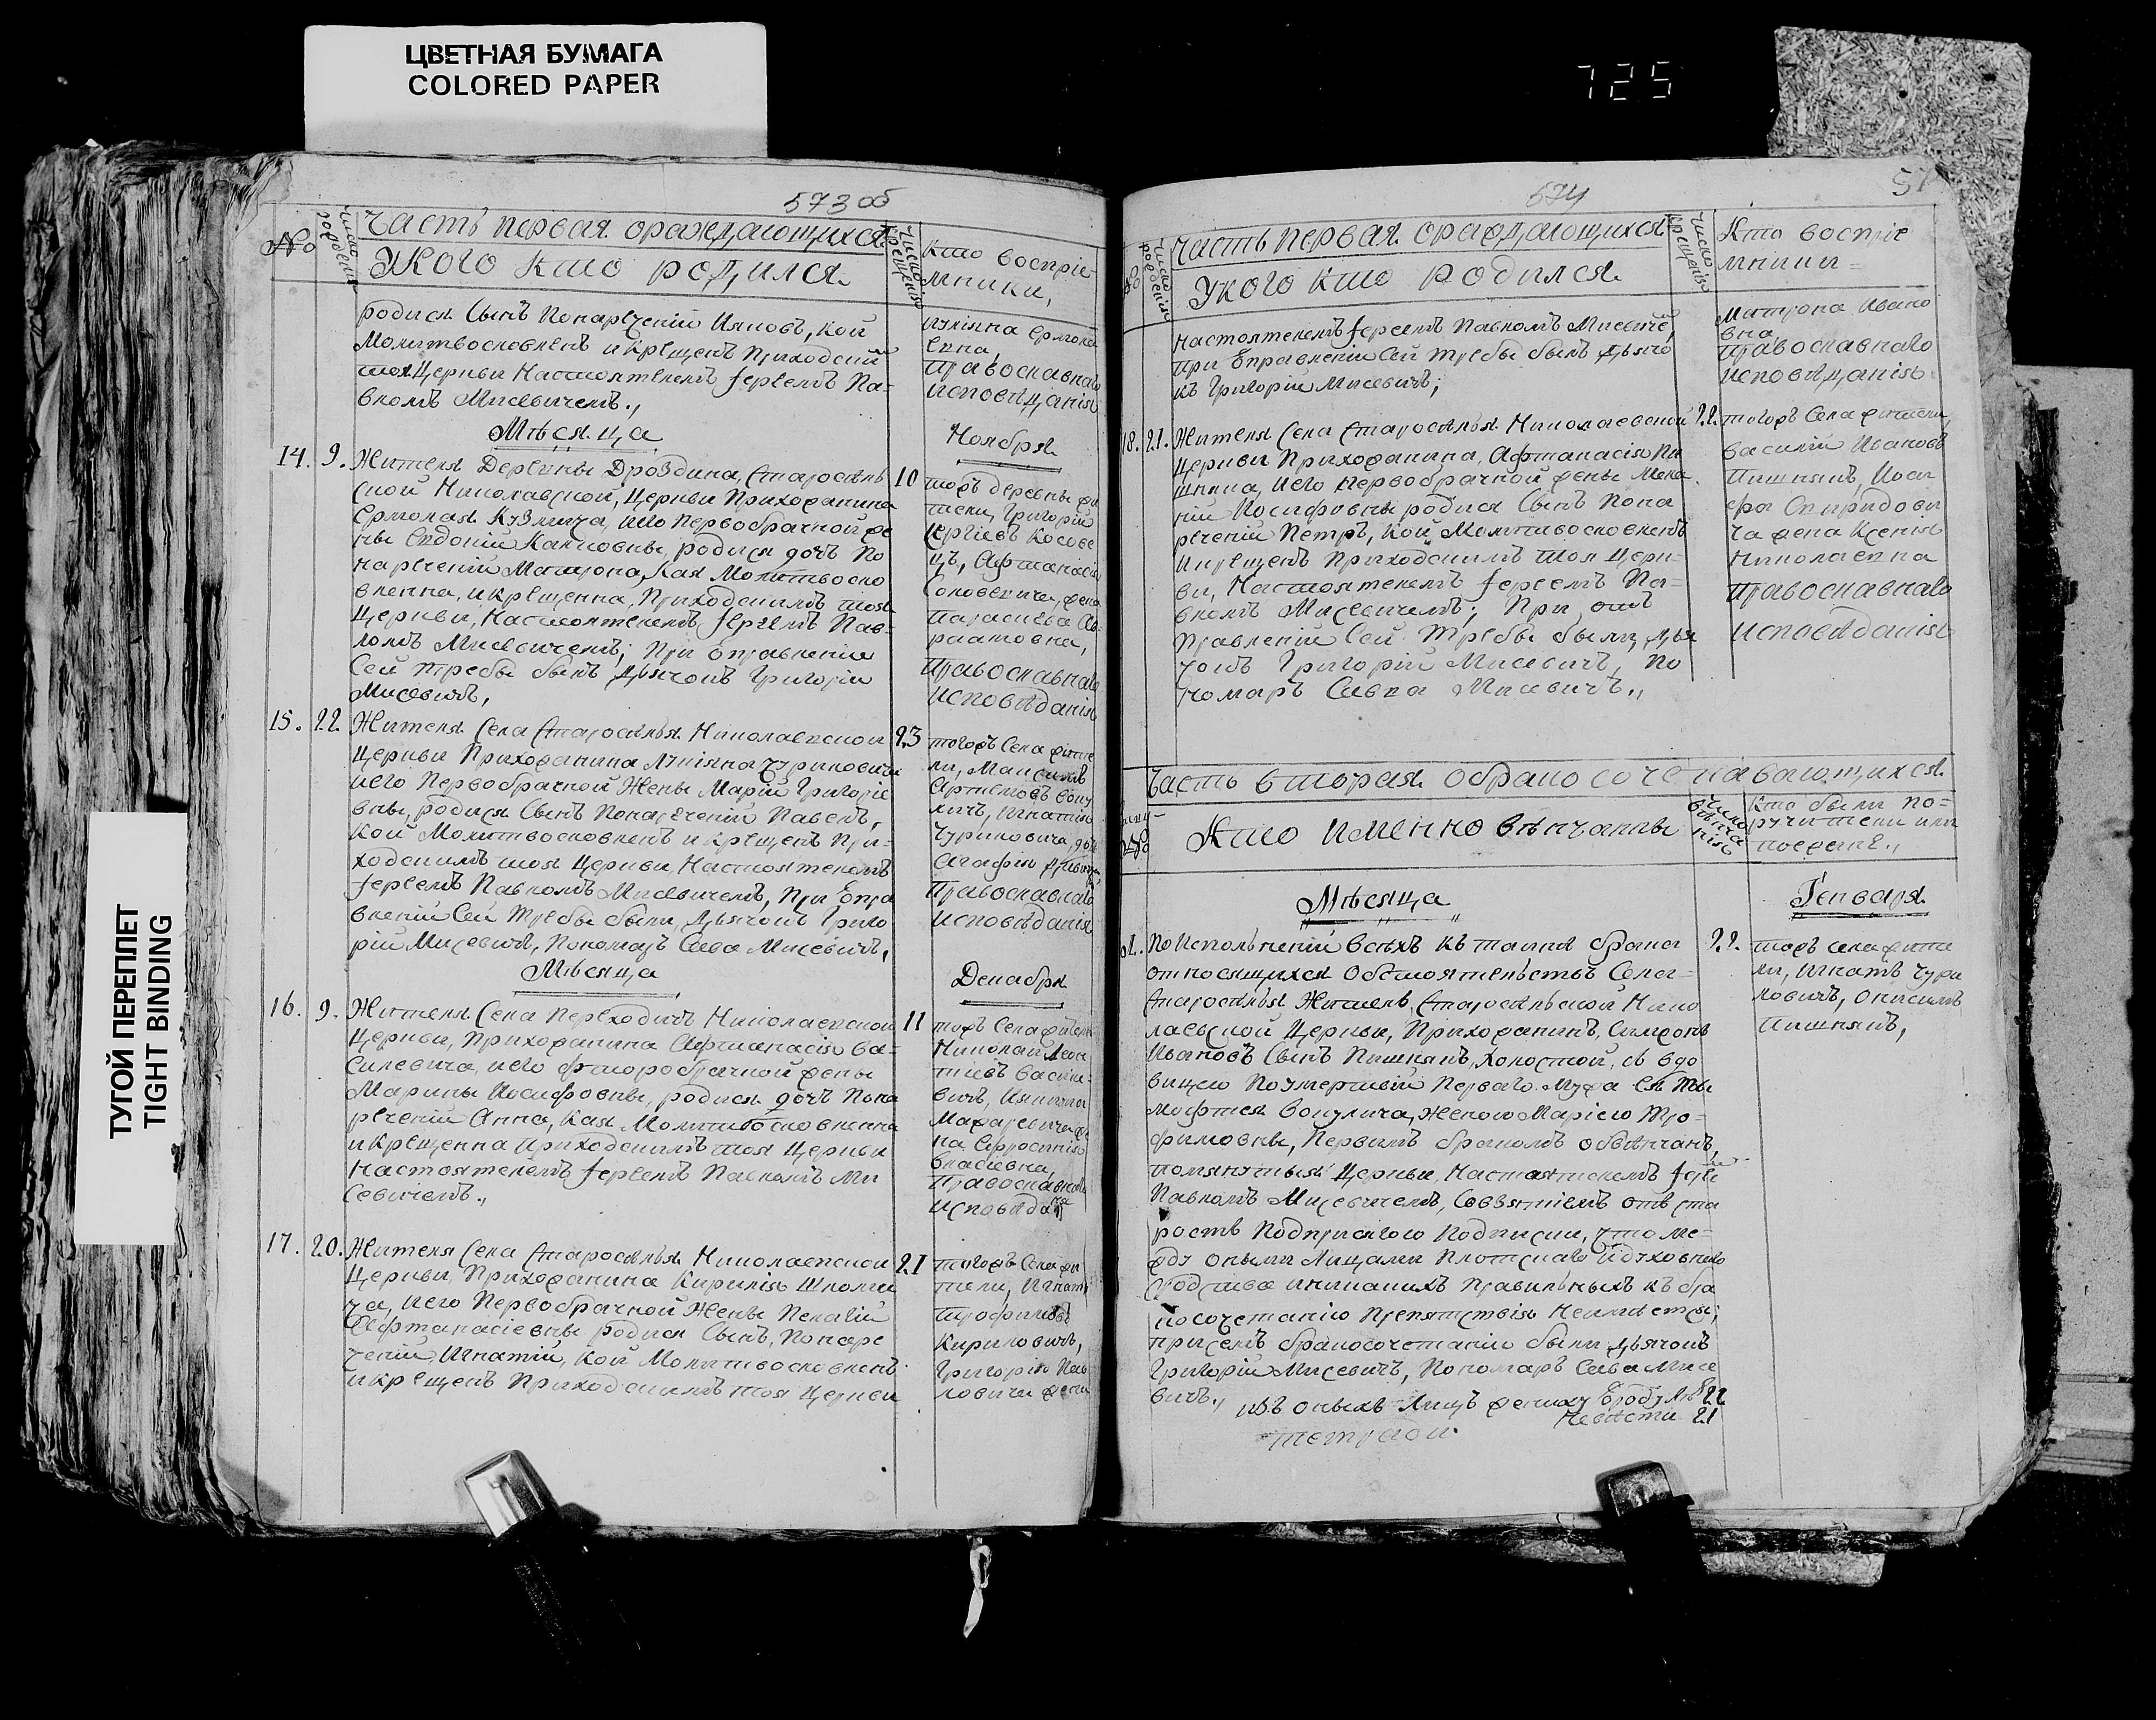 ЦВЕТНАЯ БУМАГА
COLORED PAPER
725
ТУГОЙ ПЕРЕПЛЕТ
TIGHT BINDING
573 об
№
число рождения
Часть первая ораждающихся
У Кого Кто родился
число крещения
Кто воспріе-
мники,
родися Сынъ Понареченій Іяковъ, кой
Молитвословленъ и Крещенъ Приходскій
тоя Церкви Настоятелемъ Іереемъ Па-
вломъ Мисевичемъ.,
евна,
Православнаго
исповѣданія
Мѣсяца
Ноября
14. 9. Жителя Деревни Дроздина, Старосель
ской Николавской, Церкви Прихожанина
Ермолая Кузмича, иего Первобрачной же
ны Евдокіи Карповны, родися дочь По
нареченій Матрона, Кая Молитвосло
вленна, и крещенна, Приходскимъ тоя
Церкви, Настоятелемъ Іереемъ Пав-
ломъ Мисевичемъ; При Отравленіи
Сей требы былъ Дьячокъ Григорій
Мисевичъ,
10 тоежъ деревны жи
тели, Григорій
Сергіевъ Косове
цъ, Афтанасія
жена
Параскева
Православнаго
исповѣданія
15. 22. Жителя Села Староселья Николаевской
Церкви Прихожанина Лукіяна Чуриловича
иего Первобрачной Жены Маріи Григорье
вны, родися Сынъ Понареченій Павелъ,
Кой Молитвословленъ и Крещенъ При-
ходскимъ тоя Церкви, Настоятелемъ
Іереемъ Павломъ Мисевичемъ, При Отпра
вленій Сей Требы были, Дьячокъ Григо
рій Мисевичъ, Пономарь Сава Мисевичъ,
23 тогожъ Села жите
ли, Максимъ
Артемовъ
Игнатія
Чуриловича,
Агафія
Православнаго
исповѣданія
Мѣсяца
Декабря
16. 9. Жителя Села Переходичъ Николаевской
Церкви, Прихожанина Афтанасія Ва-
силевича, иего фторобрачной жены
Марины Иосифовны, родися дочь Пона
реченій Анна, Кая Молитвословленна
и крещенна Приходскимъ тоя Церкви
Настоятелемъ Іереемъ Павломъ Ми
севичемъ.,
11 тогожъ Села жители
Николай Леон
тіевъ Васіле-
вичъ,
Макаревича же
на
Власіевна,
Православнаго
исповѣданія
17. 20. Жителя Села Староселья Николаевской
Церкви, Прихожанина Кирилія Школи
ча, иего Первобрачной Жены Пелагіи
Афтанасіевны родися Сынъ, Понаре
ченій Игнатій, кой Молитвословленъ
и крещенъ Приходскимъ тоя Церкви
21 тогожъ Села жи
тели, Игнатъ
Трофимовъ
Кириловичъ,
Григорія Пав
ловича жена
574
Часть первая ораждающихся
У кого кто родился
число крещенія
Кто воспріе
мники =
настоятелемъ Іереемъ Павломъ Мисевиче,
при Отправленіи Сей требы былъ Дьячо
къ Григорій Мисевичъ;
Матрона Ивано
вна,
Православнаго
исповѣданія
18. 21. Жителя Села Староселья Николаевской
Церкви Прихожанина, Афтанасія Пи
шняка, иего первобрачной жены Мела
ніи Иосифовны родися Сынъ Пона
реченій Петръ, Кой Молитвословленъ
и крещенъ Приходскимъ тоя Церк-
ви, Настоятелемъ Іереемъ Па-
вломъ Мисевичемъ; При отъ
правленій Сей Требы были, Дья
чокъ Григорій Мисевичъ, По
номаръ Савва Мисевичъ.,
22. тогожъ Села жители,
василій Ивановъ
Пишнякъ, Иоси
фа Спиридови
ча жена Ксенія
Николаевна
Православнаго
исповѣданія
Часть вторая обрако сочетаваюшихся.
Кто именно вѣнчанны
Кто были по-
ручители или
поезжане.,
Мѣсяца
Генваря
1. По исполненіи всѣхъ къ таинѣ брака
относящихся Обстоятельствъ Села-
Староселья Житель Старосельской Нико
лаевской Церкви, Прихожанинъ, Симеонъ
Ивановъ Сынъ Пишнякъ, холостой, съ вдо
вицею По умертвій Перваго Мужа
Маріею Тро-
фимовны, Первымъ бракомъ обвѣнчанъ,
помянутыя Церкви, Настоятелемъ Іере
Павломъ Мисевичемъ, Совзятіемъ отъ ста
ростъ Подприсягою Подписки, что ме-
жду оными Лицами Плотскаго и духовнаго
сродства и никакихъ правильныхъ къ бра
косочетанію Препятствія неимѣется;
при семъ бракосочетаніи были дьячокъ
Григорій Мисевичъ, Пономаръ Сава Мисе
вичъ., изъ оныхъ Лицъ жениху Отроду лѣтъ 22
Невѣсти 21
22. тоежъ села жите
ли, Игнатъ Чури
ловичъ, Онисимъ
Пишнякъ,